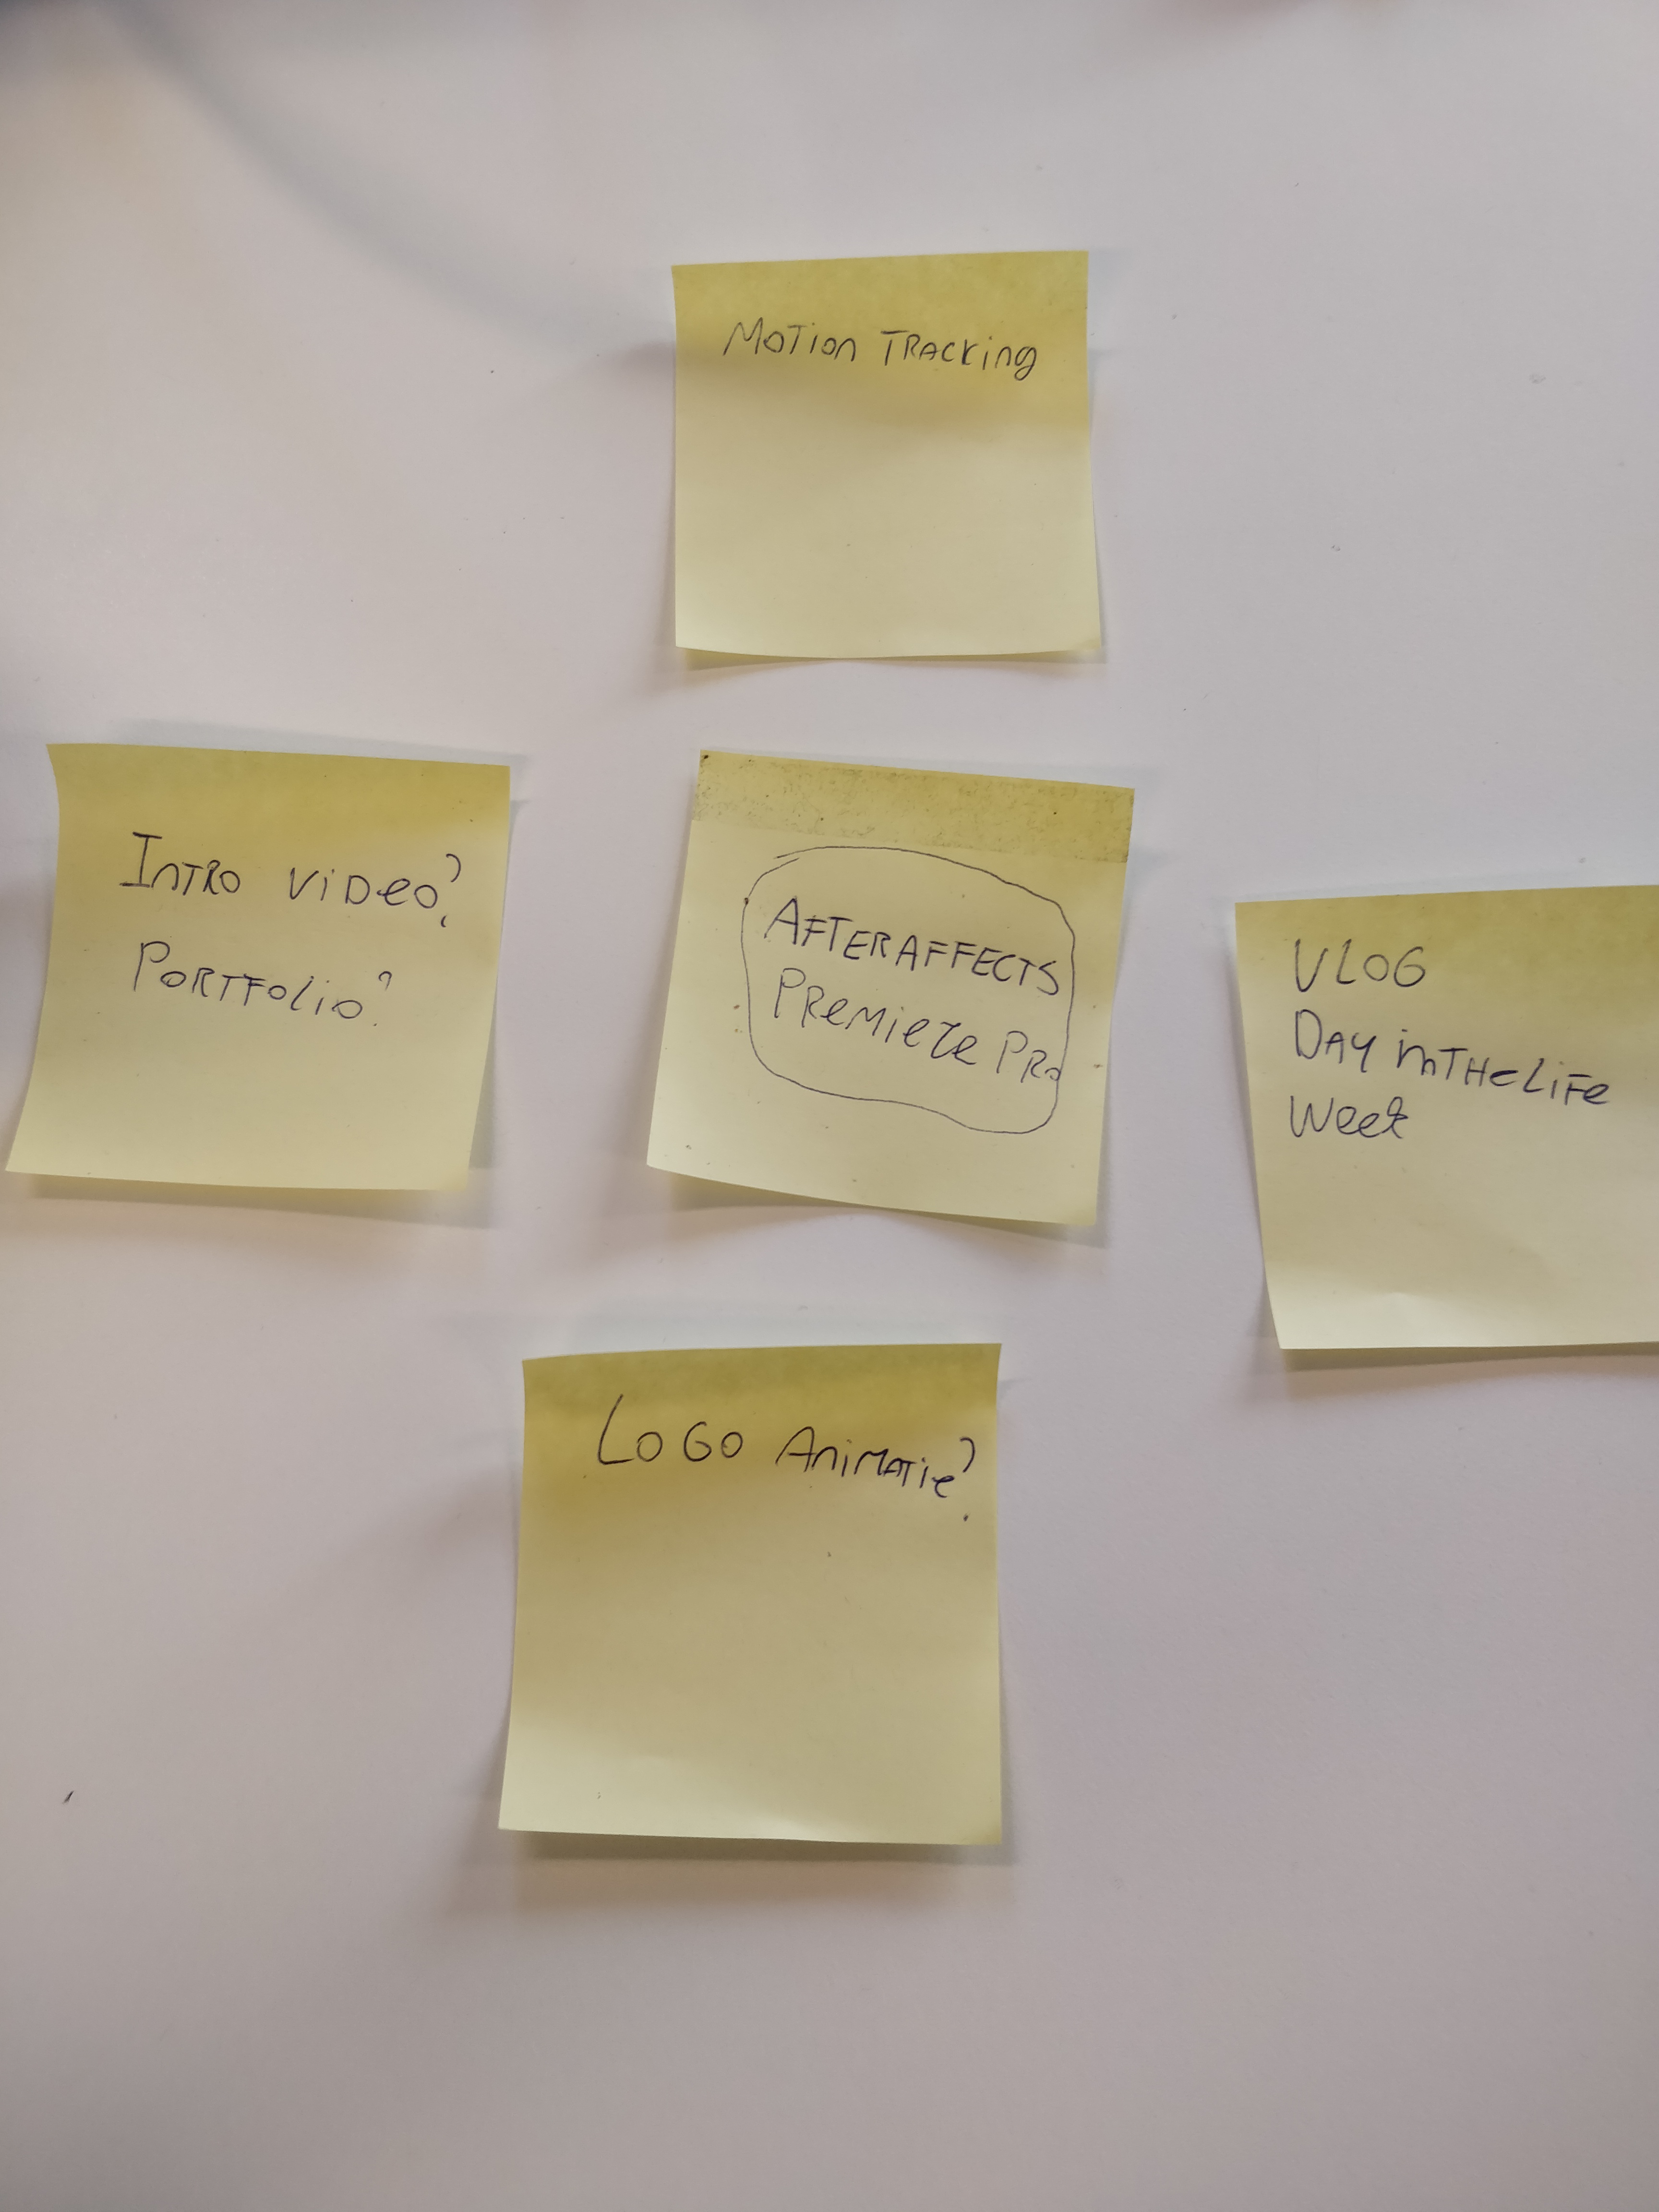 Motion Tracking
Intro video?
Portfolio?
AFTERAFFECTS
Premiere Pro
VLOG
Day in the Life
Week
Logo Animatie?